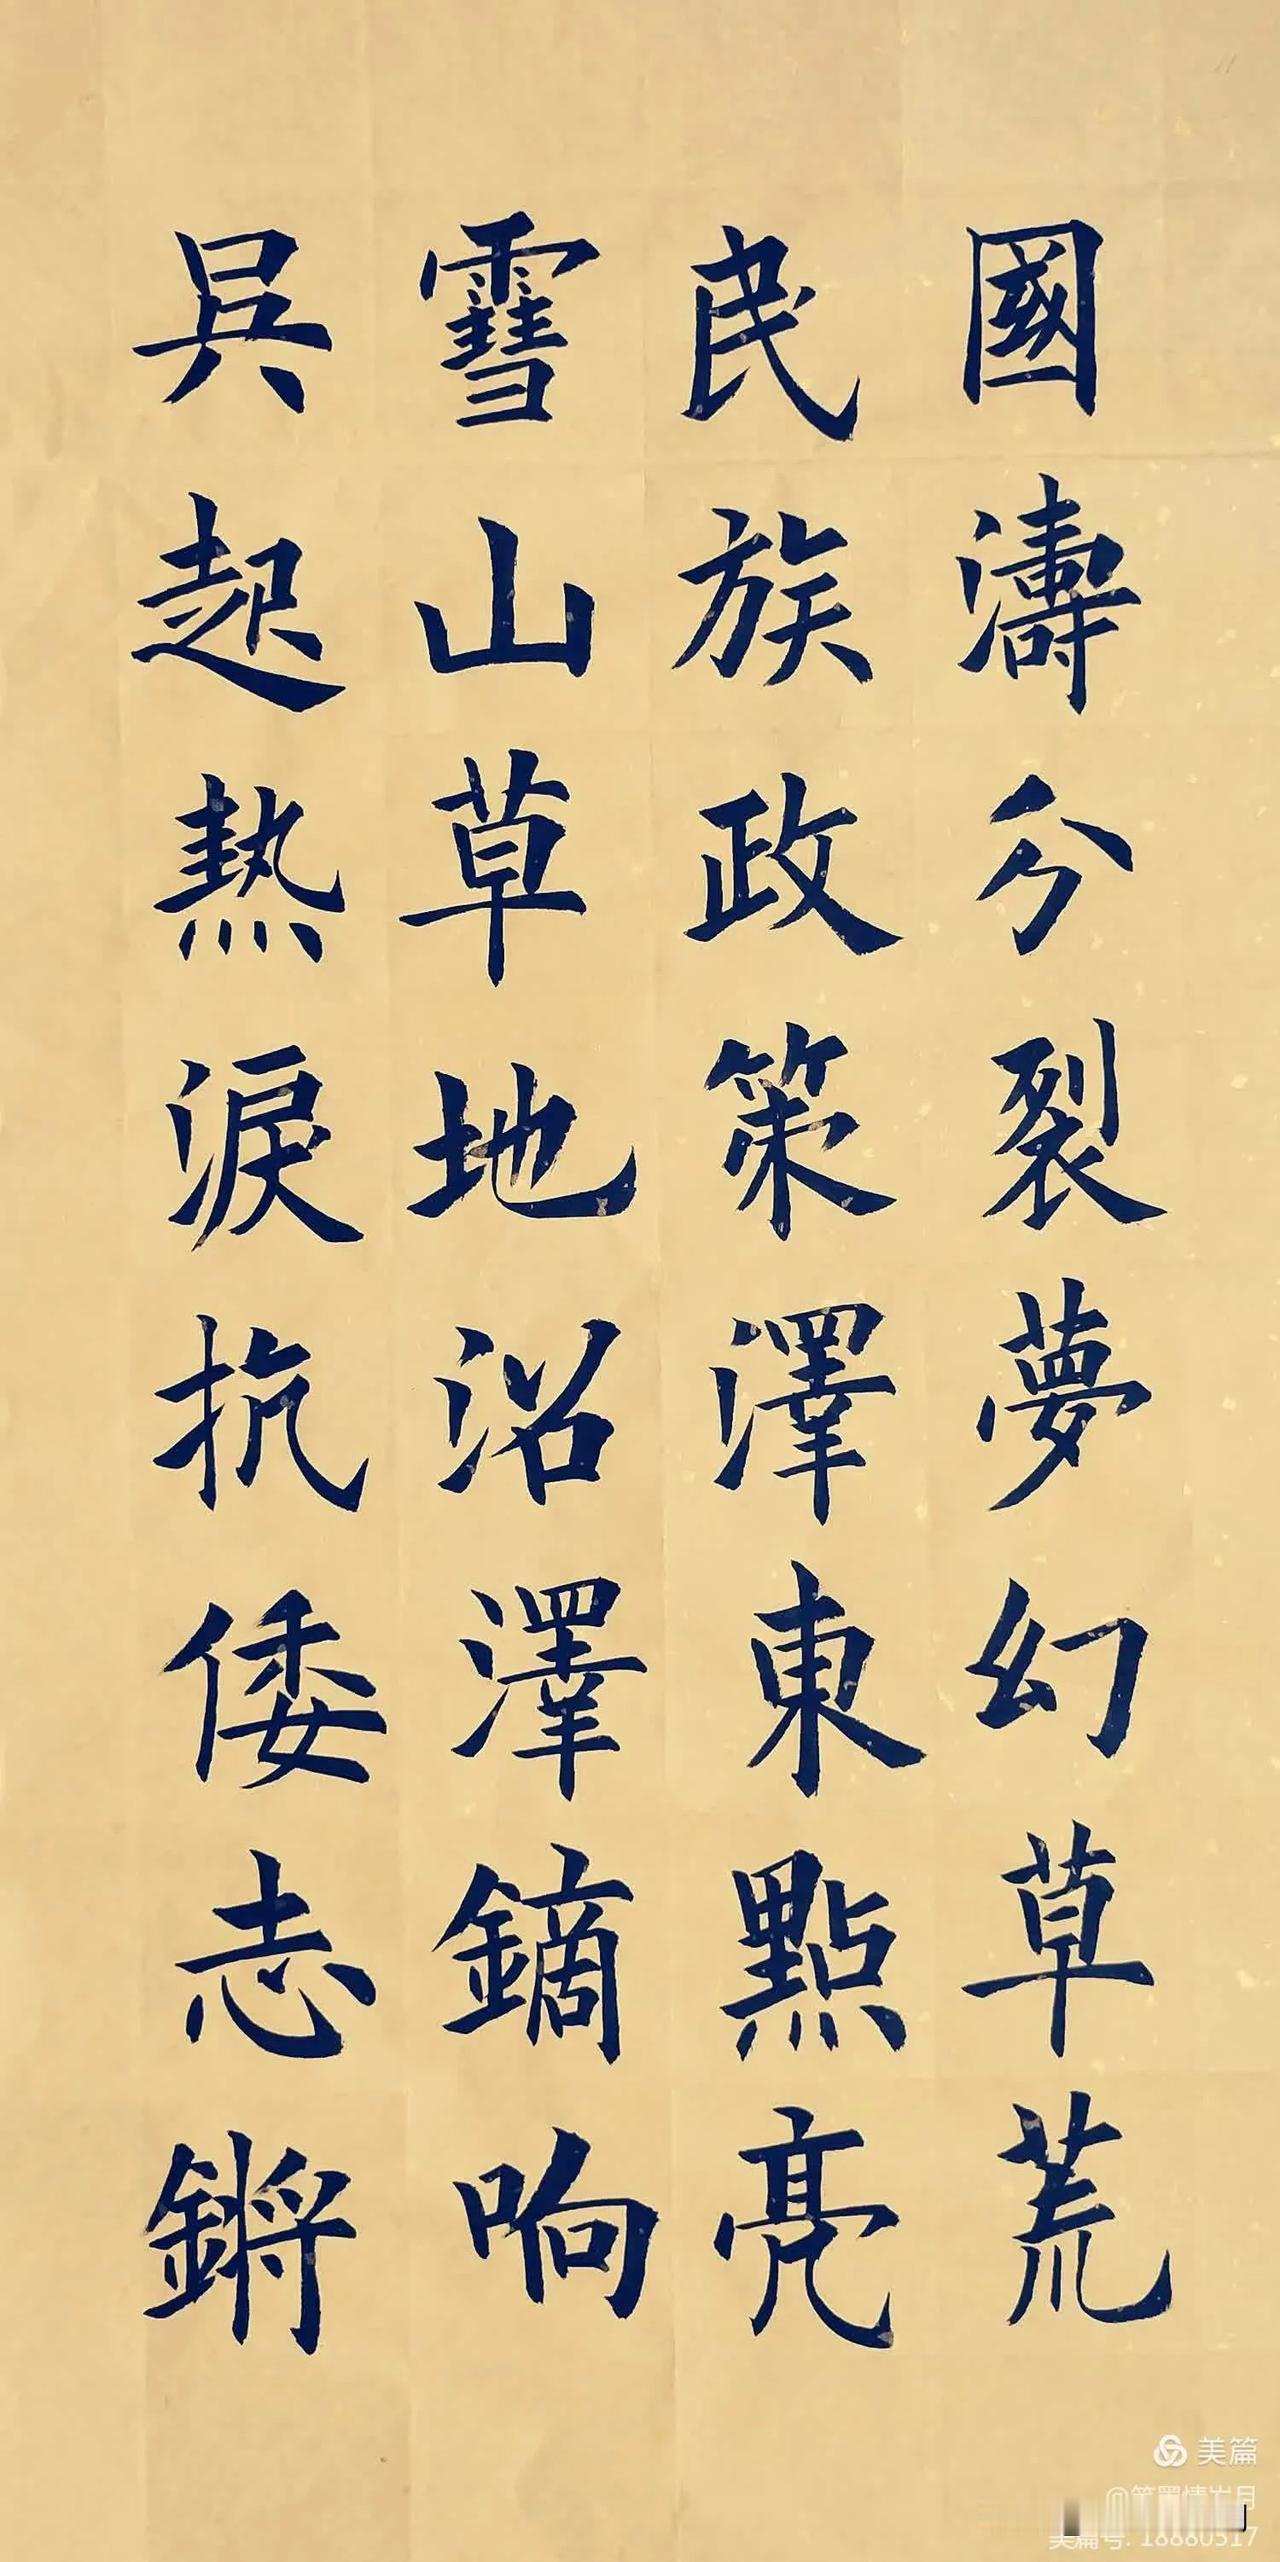 國濤分裂夢幻草荒
民族政策澤東點亮
雪山草地沼澤鏑响
吳起熱淚抗倭志鏘
美篇
美篇号: 18880517